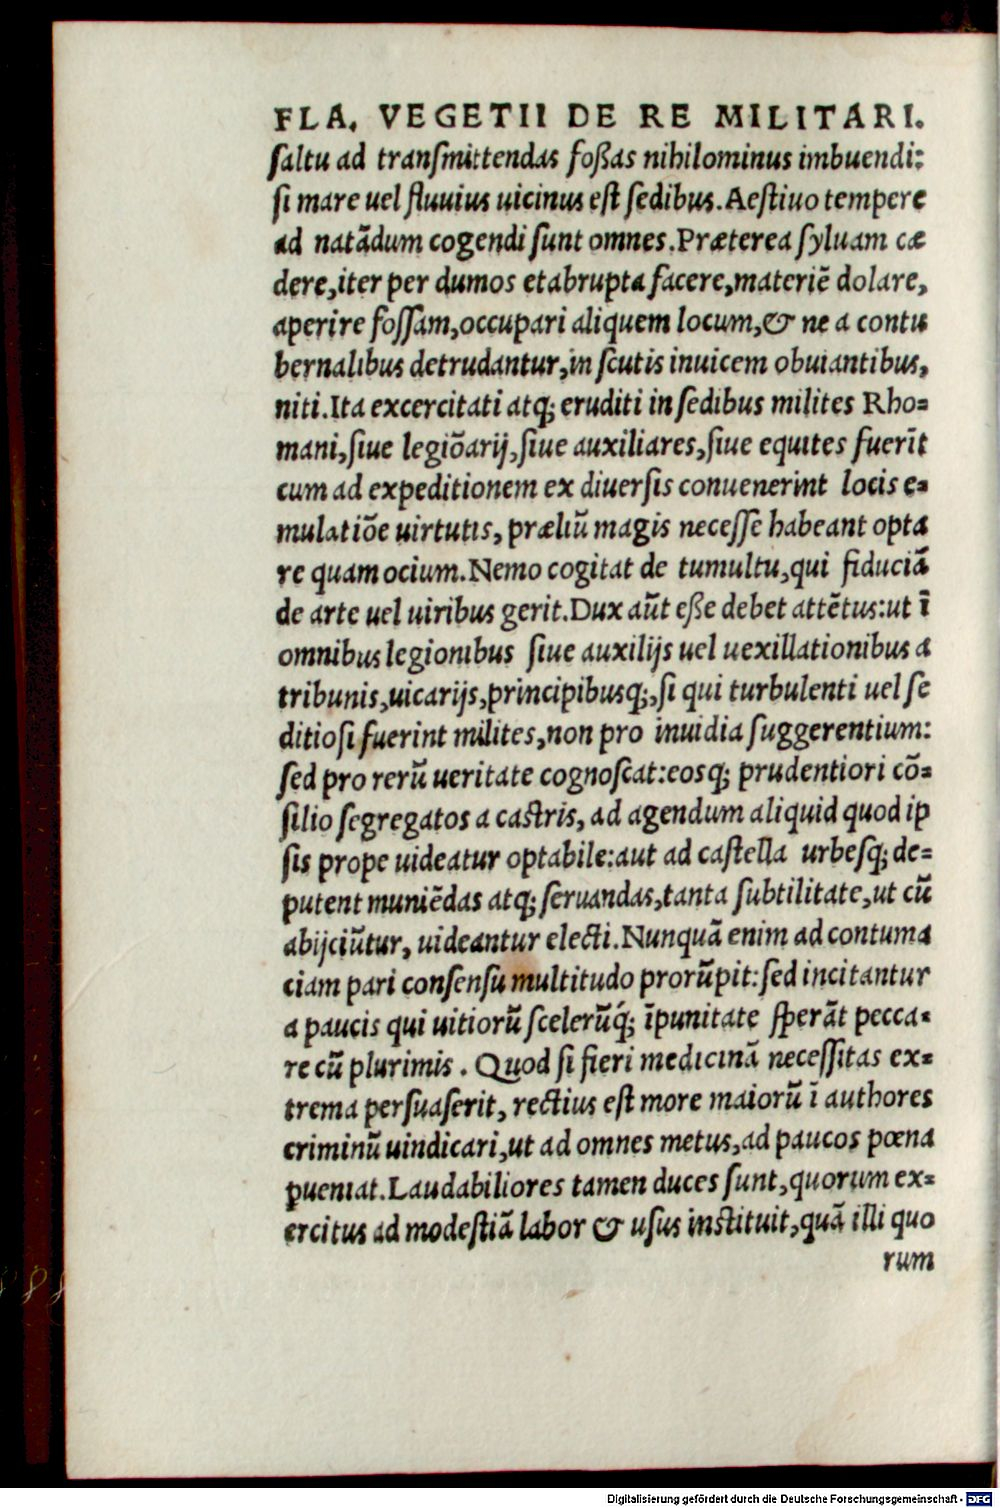 FLA. VEGETII DE RE MILITARI.
ſaltu ad tranſmittendas foßas nihilominus imbuendi:
ſi mare uel fluuius uicinus eſt ſedibus. Aeſtiuo tempere
ad natādum cogendi ſunt omnes. Præterea ſyluam cæ
dere, iter per dumos et abrupta facere, materiē dolare,
aperire foſſam, occupari aliquem locum, & ne a contu
bernalibus detrudantur, in ſcutis inuicem obuiantibus,
niti. Ita excercitati atq; eruditi in ſedibus milites Rho=
mani, ſiue legiōarij, ſiue auxiliares, ſiue equites fuerīt
cum ad expeditionem ex diuerſis conuenerint locis e=
mulatiōe uirtutis, præliū magis neceſſe habeant opta
re quam ocium. Nemo cogitat de tumultu, qui fiduciā
de arte uel uiribus gerit. Dux aūt eße debet attētus: ut ī
omnibus legionibus ſiue auxilijs uel uexillationibus a
tribunis, uicarijs, principibusq;, ſi qui turbulenti uel ſe
ditioſi fuerint milites, non pro inuidia ſuggerentium:
ſed pro rerū ueritate cognoſcat: eosq; prudentiori cō=
ſilio ſegregatos a caſtris, ad agendum aliquid quod ip
ſis prope uideatur optabile: aut ad caſtella urbeſq; de=
putent muniēdas atq; ſeruandas, tanta ſubtilitate, ut cū
abijciūtur, uideantur electi. Nunquā enim ad contuma
ciam pari conſenſu multitudo prorūpit: ſed incitantur
a paucis qui uitiorū ſcelerūq́; īpunitate ſperāt pecca=
re cū plurimis. Quod ſi fieri medicinā neceſſitas ex=
trema perſuaſerit, rectius eſt more maiorū ī authores
criminū uindicari, ut ad omnes metus, ad paucos pœna
pueniat. Laudabiliores tamen duces ſunt, quorum ex=
ercitus ad modeſtiā labor & uſus inſtituit, quā illi quo
rum
Digitalisierung gefördert durch die Deutsche Forschungsgemeinschaft - DFG